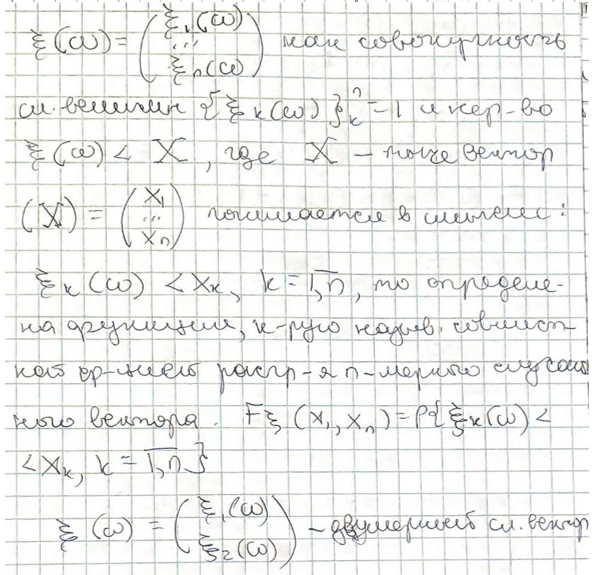 ξ(ω) = (ξ₁(ω) ... ξn(ω)) как совокупность
сл. величин {ξk(ω)}ⁿk=1 и нер-во
ξ(ω) < X, где X – тоже вектор
(X) = (x₁ ... xn) понимается в смысле:
ξk(ω) < xk, k = 1,n, то определе-
на функция, к-рую назыв. совмест-
ной ф-цией распр-я n-мерного случай
ного вектора. Fξ(x₁, xn) = P{ξk(ω) <
< xk, k = 1,n}
ξ(ω) = (ξ₁(ω) ξ₂(ω)) – двумерный сл. вектор